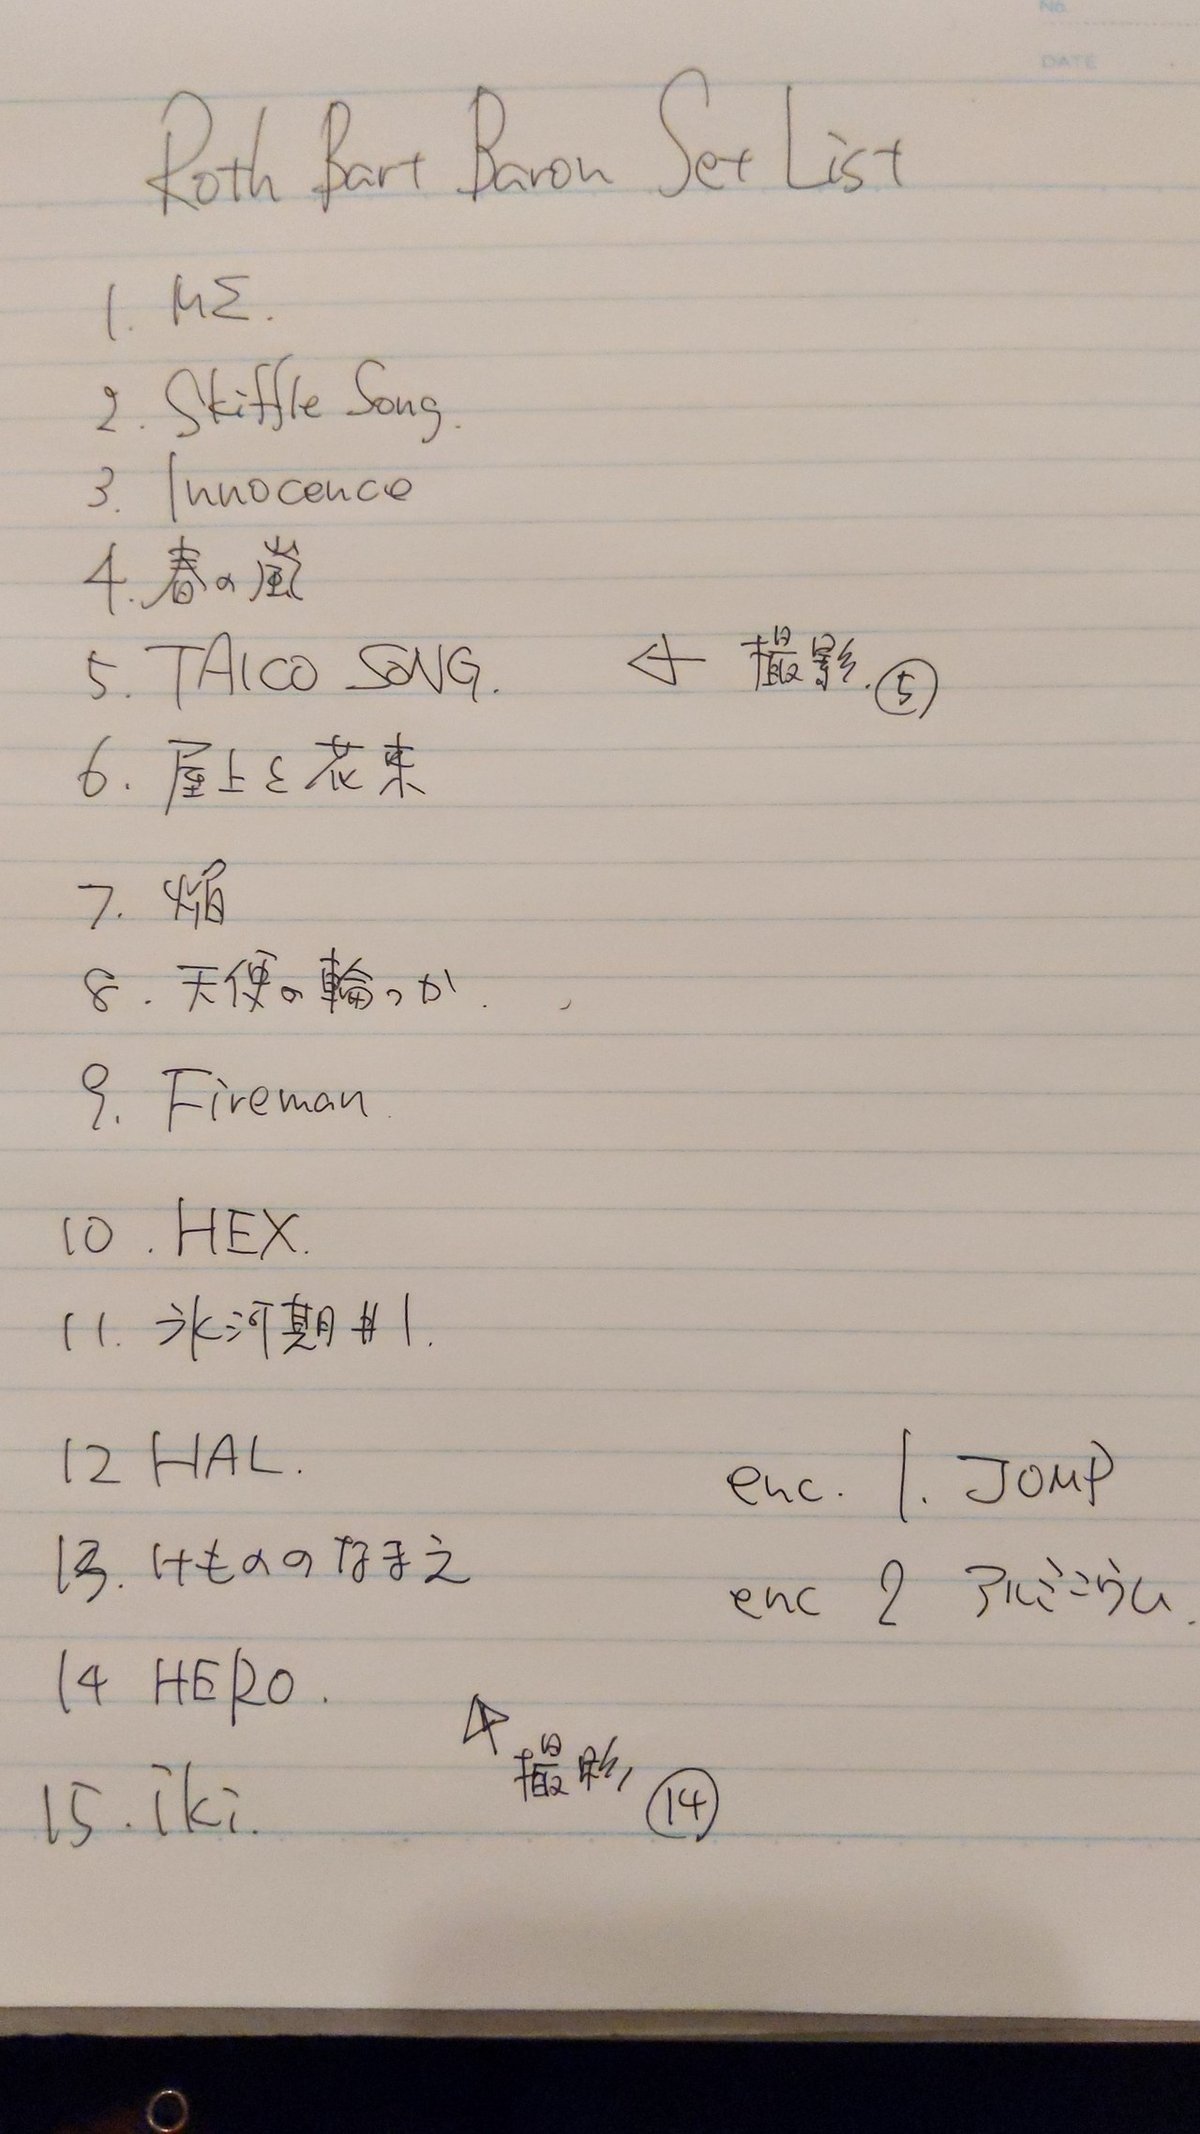 No.
DATE
Roth Bart Baron Set List
1. MΣ.
2. Skiffle Song.
3. Innocence
4. 春の嵐
5. TAICO SONG. ← 撮影. ⑤
6. 屋上と花束
7. 焔
8. 天使の輪っか.
9. Fireman.
10. HEX.
11. 氷河期#1.
12 HAL.
enc. 1. JUMP
13. けもののなまえ
enc 2 アルミニウム.
14 HERO.
撮影 ⑭
15. iki.